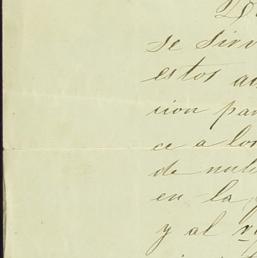 se sirv
estos au
cion par
ce a los
de nuli
en la
y al v